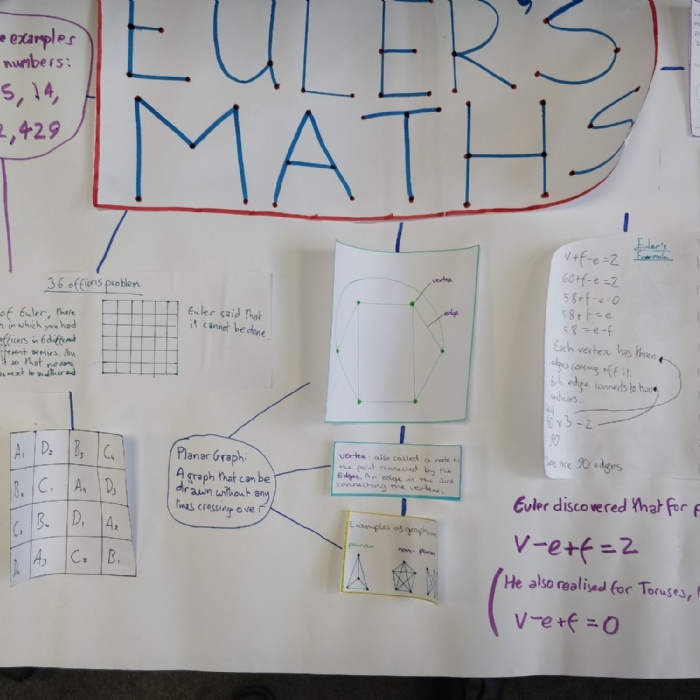 EULER'S
MATHS
e examples
numbers:
5, 14,
2,429
36 officers problem
of Euler, there
in which you had
officers in 6 different
different armies. You
it so that no one
next to another
Euler said that
it cannot be done.
A₁ D₂ B₃ C₄
B₂ C₁ A₄ D₃
C₃ B₄ D₁ A₂
D₄ A₃ C₂ B₁
vertex
edge
Planar Graph:
A graph that can be
drawn without any
lines crossing over
vertex - also called a node is
the point connected by the
Edges. An edge is the line
connecting the vertex.
Examples of graphs
planar
non-planar
Euler's
Formula
V+f-e=2
60+f-e=2
58+f-e=0
58+f=e
58=e-f
Each vertex has three
edges coming off it.
edge connects to two
vertices.
x3÷2=
90
are 90 edges
Euler discovered that for p
V-e+f=2
He also realised for Toruses,
V-e+f=0